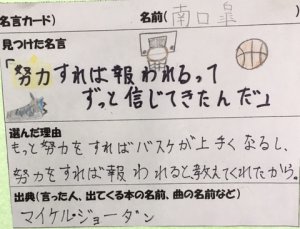 名言カード)
名前(南口皐)
見つけた名言
「努力すれば報われるって
ずっと信じてきたんだ」
選んだ理由
もっと努力をすればバスケが上手くなるし、
努力をすれば報われると教えてくれたから。
出典(言った人、出てくる本の名前、曲の名前など)
マイケル・ジョーダン